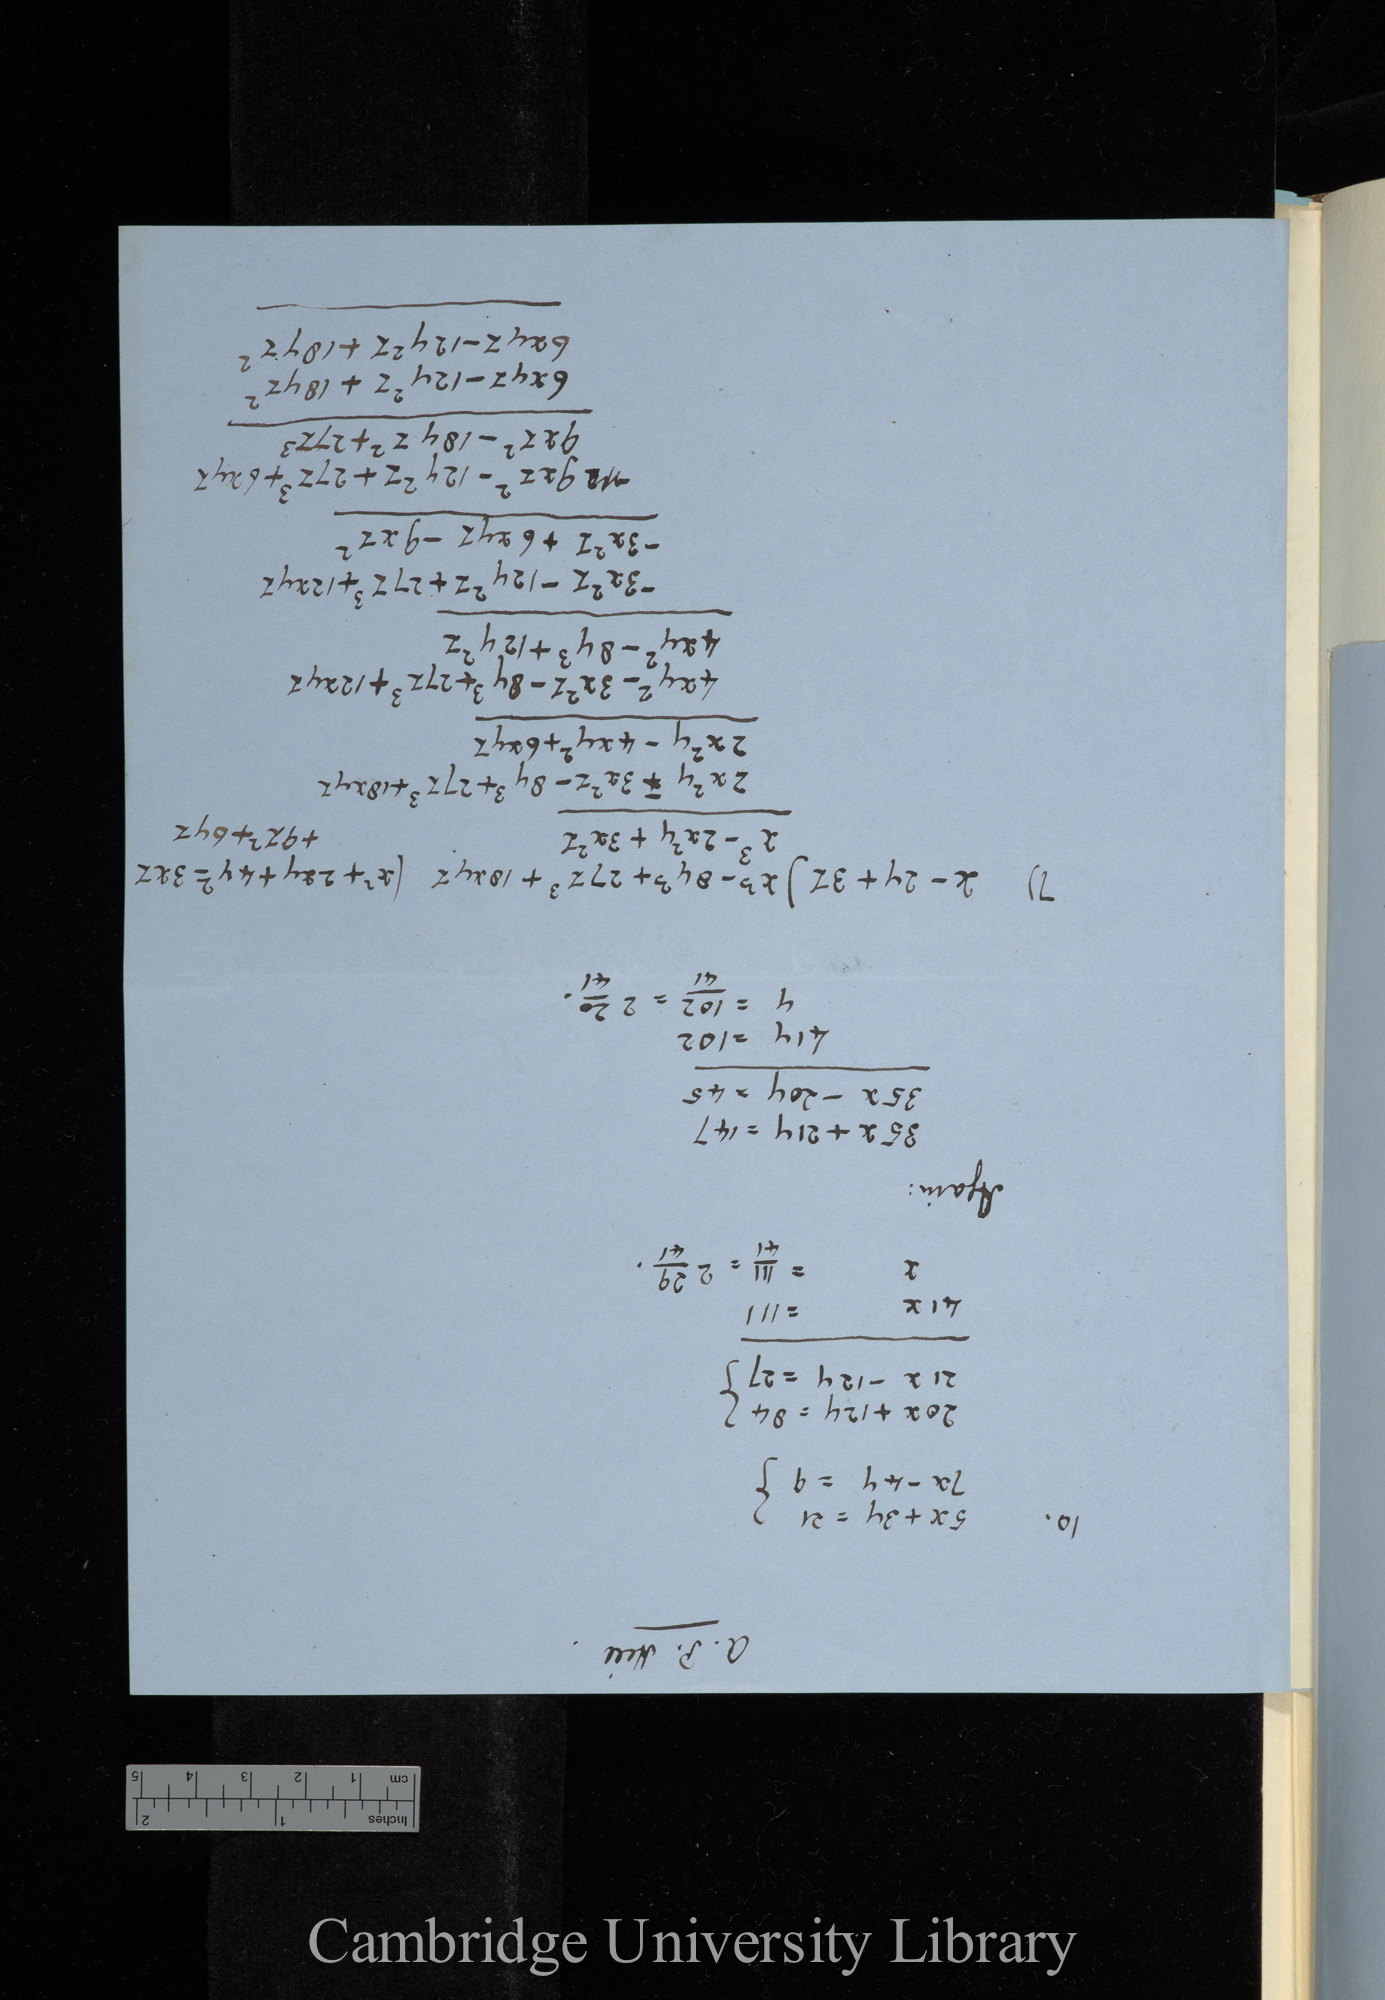 A. P. Heii
10. 5x + 3y = 21 }
7x - 4y = 9 }
20x + 12y = 84 }
21x - 12y = 27 }
41x = 111
x = 111/41 = 2 29/41.
Again:
35x + 21y = 147
35x - 20y = 45
41y = 102
y = 102/41 = 2 20/41.
7) x - 2y + 3z ) x³ - 8y³ + 27z³ + 18xyz ( x² + 2xy + 4y² - 3xz
+ 9z² + 6yz
x³ - 2x²y + 3x²z
2x²y - 3x²z - 8y³ + 27z³ + 18xyz
2x²y - 4xy² + 6xyz
4xy² - 3x²z - 8y³ + 27z³ + 12xyz
4xy² - 8y³ + 12y²z
-3x²z - 12y²z + 27z³ + 12xyz
-3x²z + 6xyz - 9xz²
9xz² - 12y²z + 27z³ + 6xyz
9xz² - 18yz² + 27z³
6xyz - 12y²z + 18yz²
6xyz - 12y²z + 18yz²
Inches 1 2
cm 1 2 3 4 5
Cambridge University Library